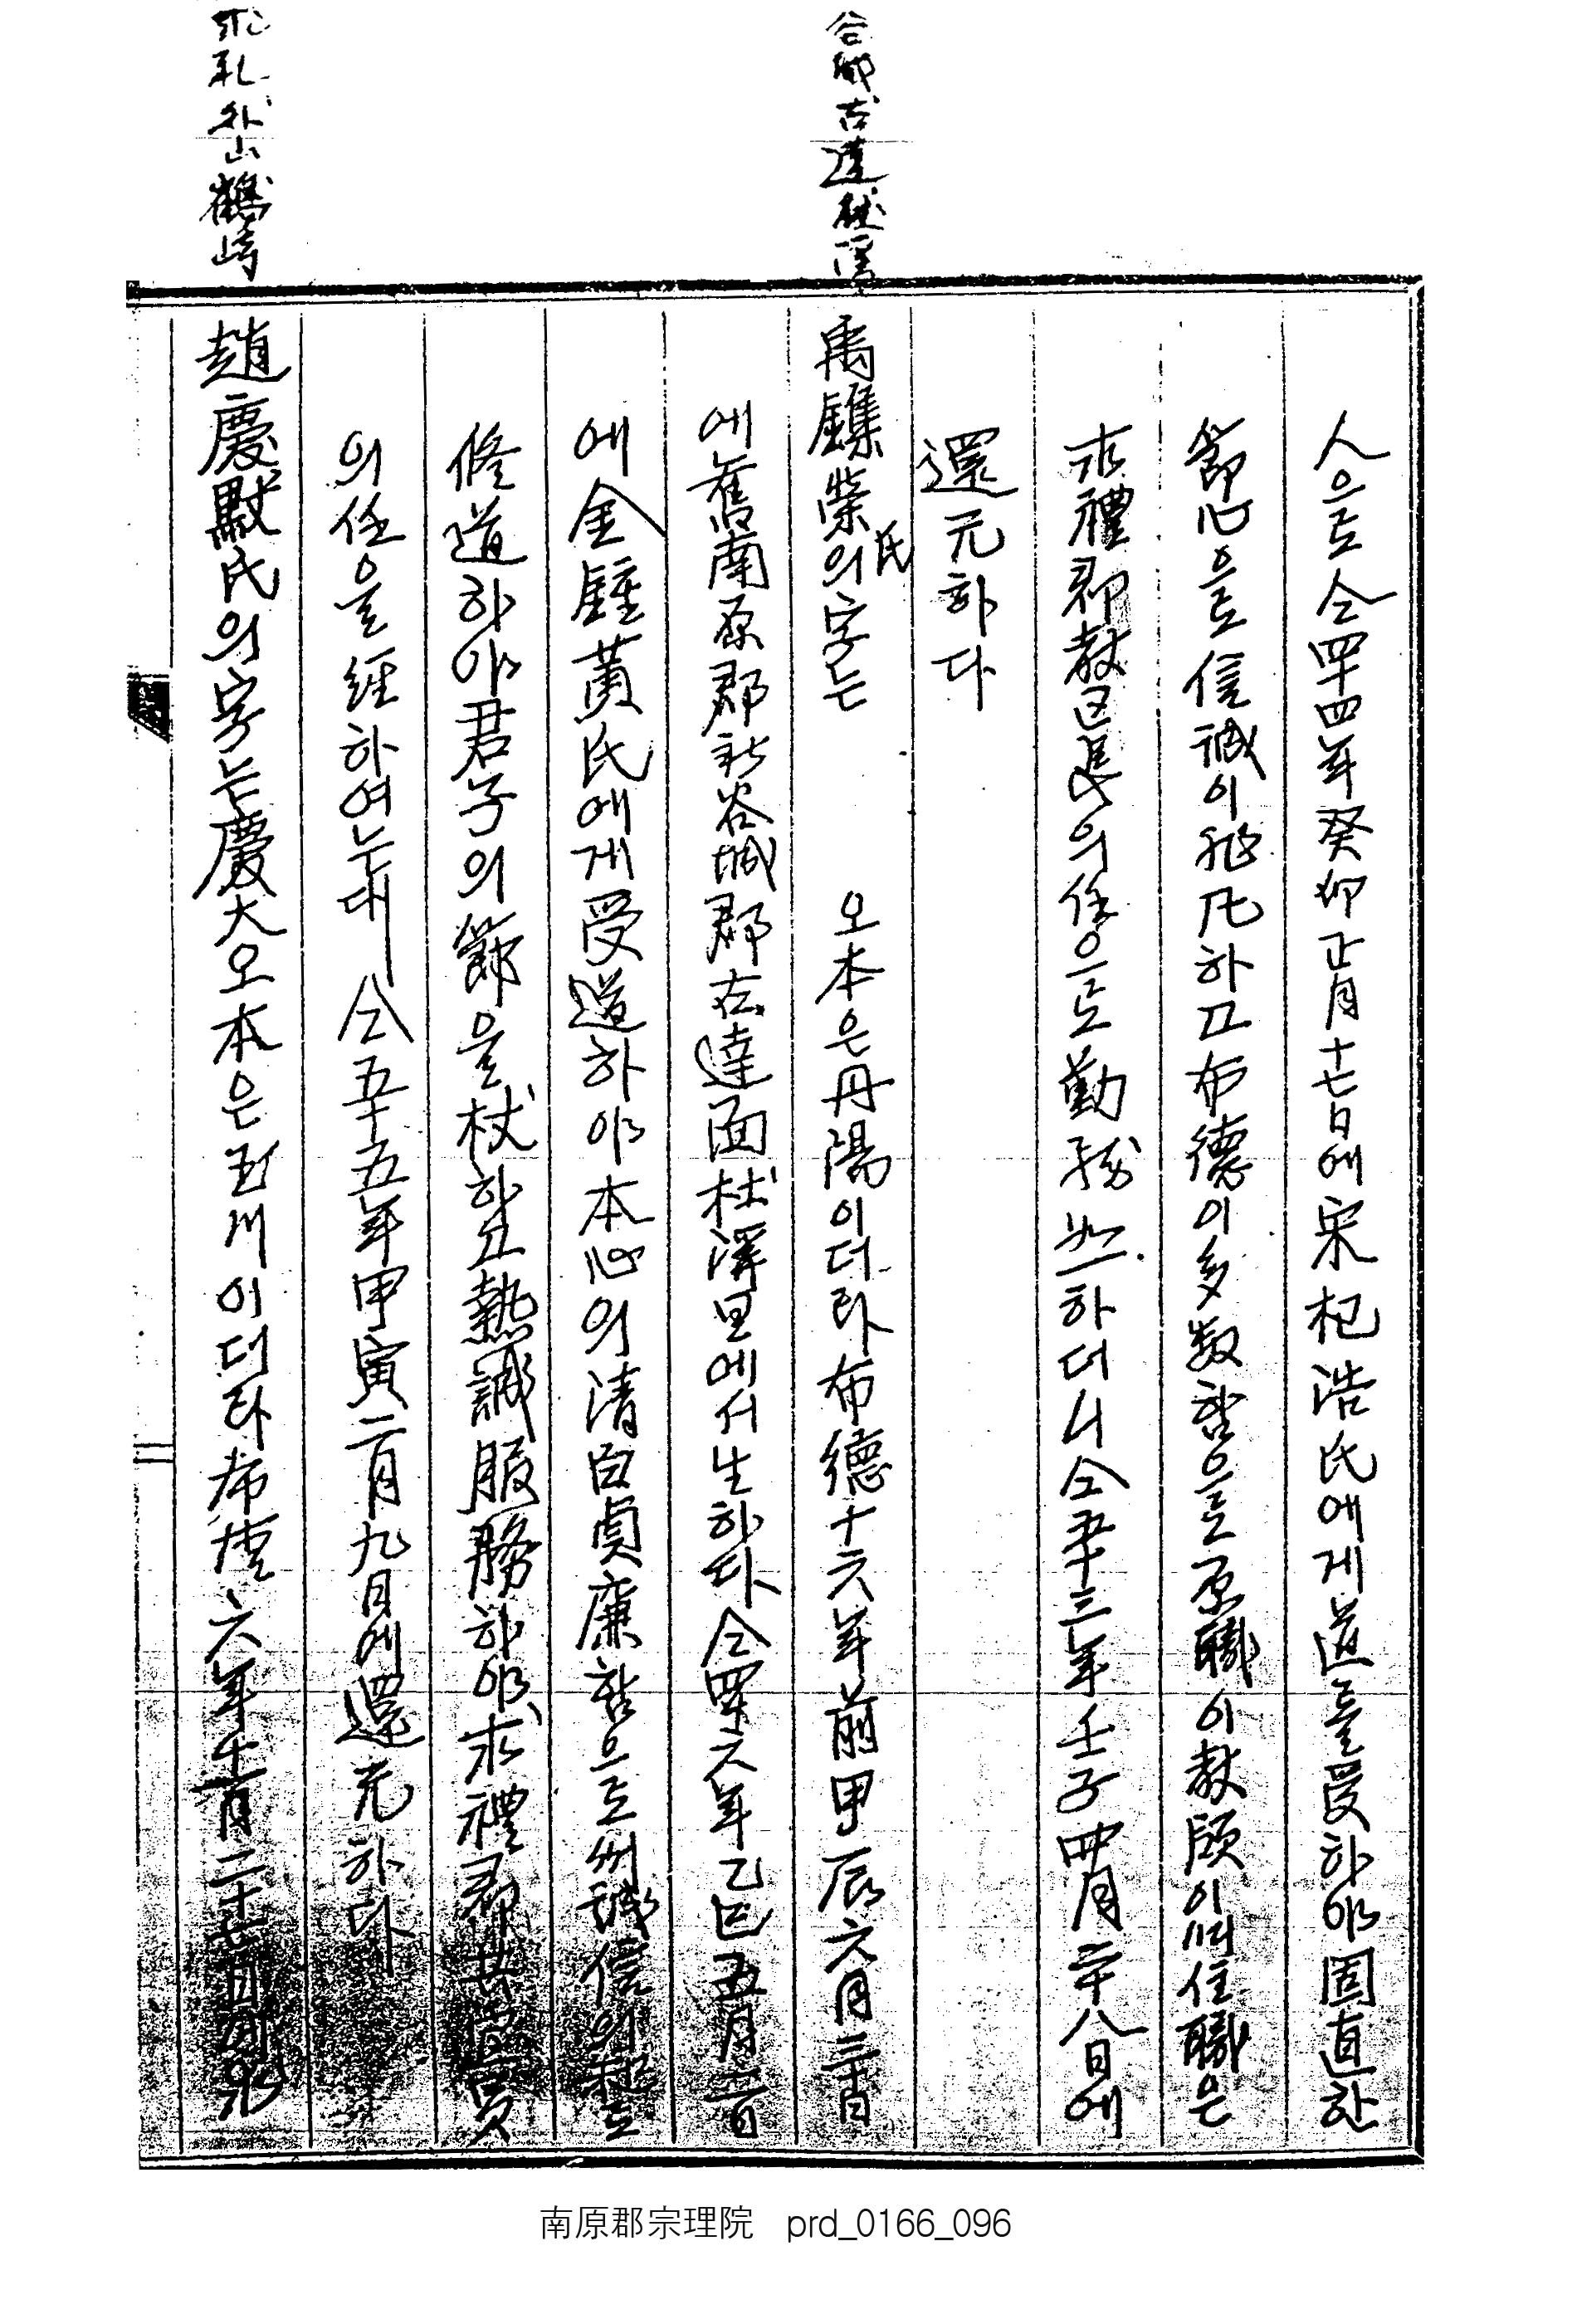 谷城古達杜溪
求礼外山鶴崎
人으로 仝四十四年癸卯正月十七日에 宋杞浩氏에게 道를 受하야 固直한
節心으로 信誠이 非凡하고 布德이 多數함으로 原職이 敎願이며 住職은
求禮郡敎區長의 任으로 勤務 하더니 仝五十三年壬子四月二十八日에
還元하다
禹鏶榮氏의 字는 오 本은 丹陽이더라 布德十六年前甲辰六月三十日
에 舊南原郡 新谷城郡 古達面 杜溪里에서 生하다 仝四十六年乙巳五月二日
에 金鍾黃氏에게 受道하야 本心의 淸白貞廉함으로 誠信의
修道하야 君子의 節을 杖하고 熱誠服務하야 求禮郡共宣員
의 任을 經하여는대 仝五十五年甲寅二月九日에 還元하다
趙慶默氏의 字는 慶大오 本은 玉川이더라 布德六年十一月二十七日
南原郡宗理院 prd_0166_096